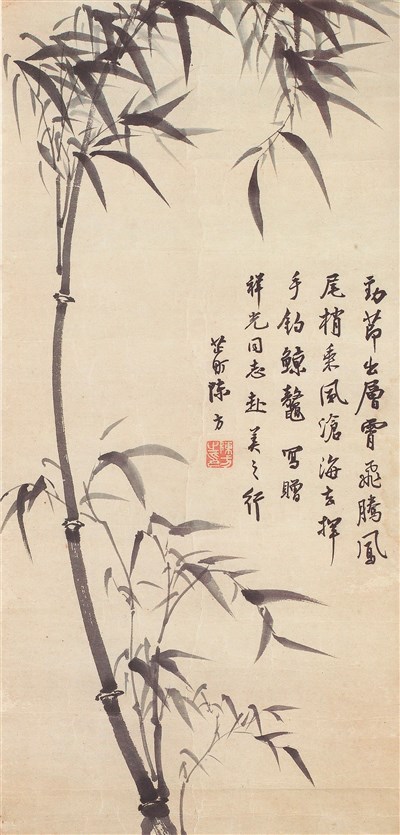 劲节出层霄飛騰鳳
尾梢乘風滄海去揮
手釣鯨鼇 寫贈
祥光同志赴美之行
芷町陳方